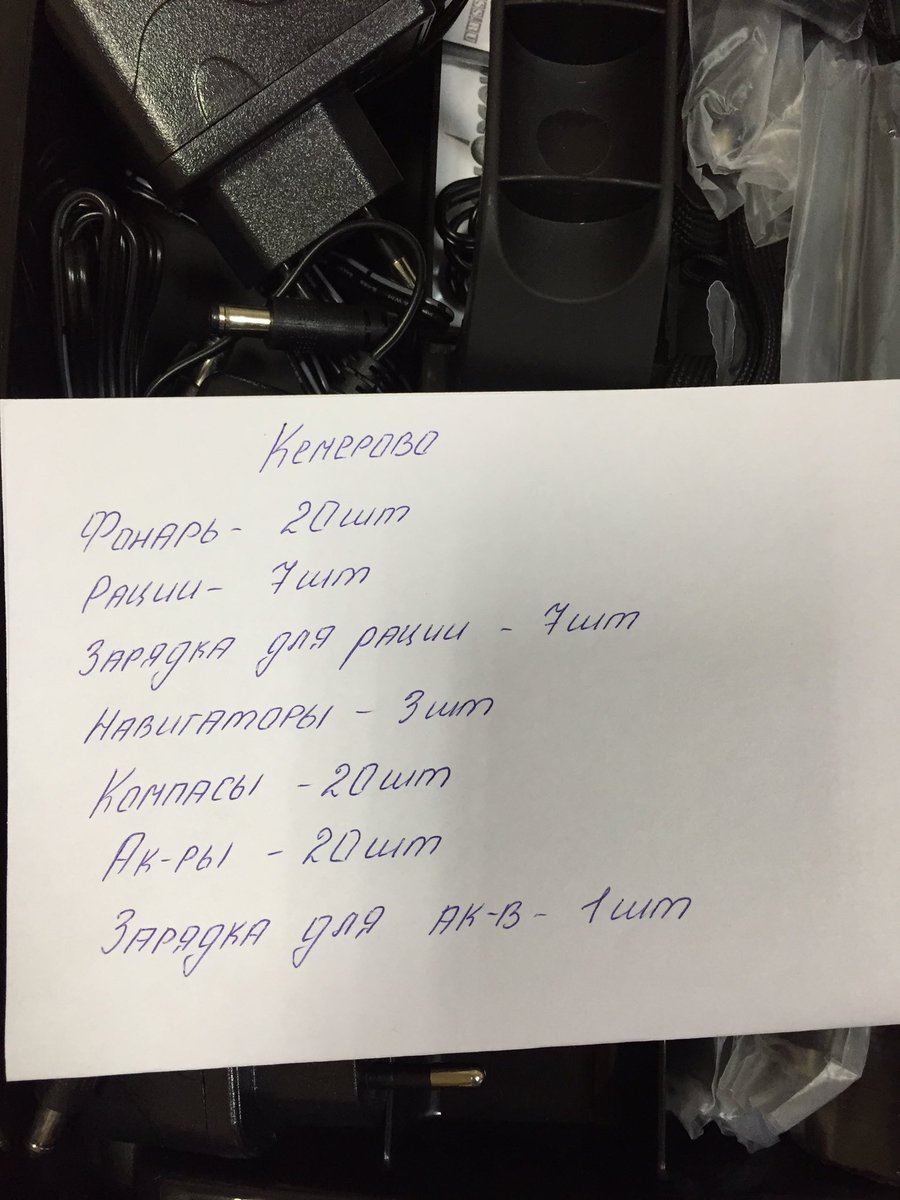 Кемерово
Фонарь- 20шт
Рации- 7шт
Зарядка для рации - 7шт
Навигаторы - 3шт
Компасы - 20шт
Ак-ры - 20шт
Зарядка для ак-в- 1шт